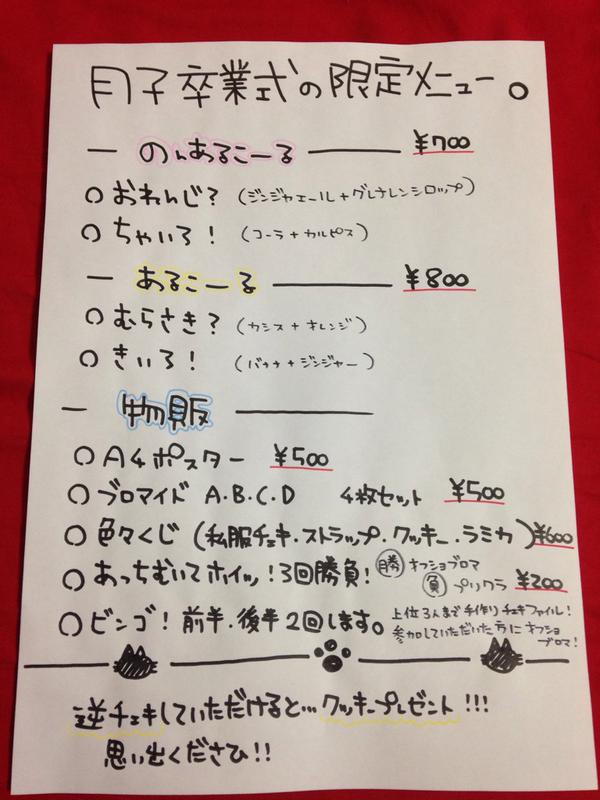 月子卒業式の限定メニュー。
のんあるこーる ¥700
○ おれんじ? (ジンジャエール+グレナレンシロップ)
○ ちゃいろ! (コーラ+カルピス)
あるこーる ¥800
○ むらさき? (カシス+オレンジ)
○ きいろ! (バナナ+ジンジャー)
物販
○ A4ポスター ¥500
○ ブロマイド A.B.C.D 4枚セット ¥500
○ 色々くじ (私服チェキ.ストラップ.クッキー.ラミカ) ¥600
○ あっちむいてホイッ!3回勝負! 勝 オフショブロマ
負 プリクラ ¥200
○ ビンゴ! 前半.後半2回します。 上位3人まで手作りチェキファイル!
参加していただいた方にオフショ
ブロマ!
逆チェキしていただけると…クッキープレゼント!!!
思い出くださひ!!